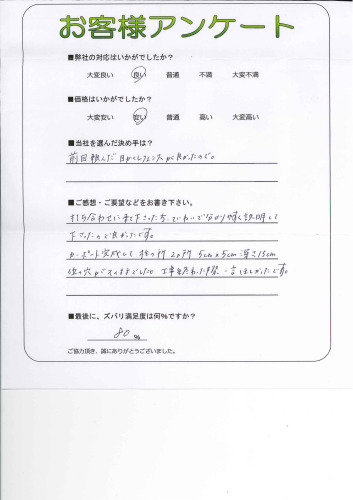 お客様アンケート
■弊社の対応はいかがでしたか?
大変良い 良い 普通 不満 大変不満
■価格はいかがでしたか?
大変安い 安い 普通 高い 大変高い
■当社を選んだ決め手は?
前回頼んだ が良かったので。
■ご感想・ご要望などをお書き下さい。
打ち合わせに来て下さった方、ていねいで分かりやすく説明して
下さったので良かったです。
カーポート完成して 柱の所 2ヶ所 5cm×5cm 深さ15cm
位の穴がそのままでした 工事を終わった時 一言ほしかったです。
■最後に、ズバリ満足度は何%ですか?
80 %
ご協力頂き、誠にありがとうございました。